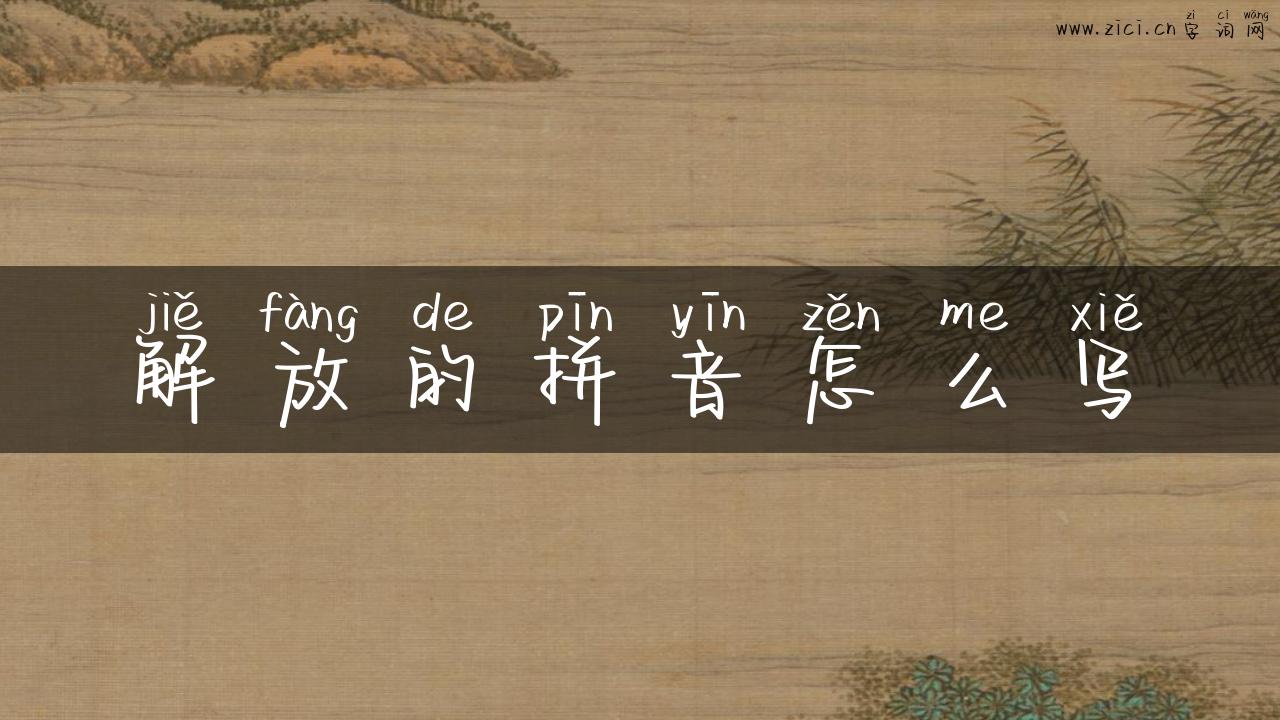 zì cí wǎng
www.zici.cn 字词网
jiě fàng de pīn yīn zěn me xiě
解放的拼音怎么写